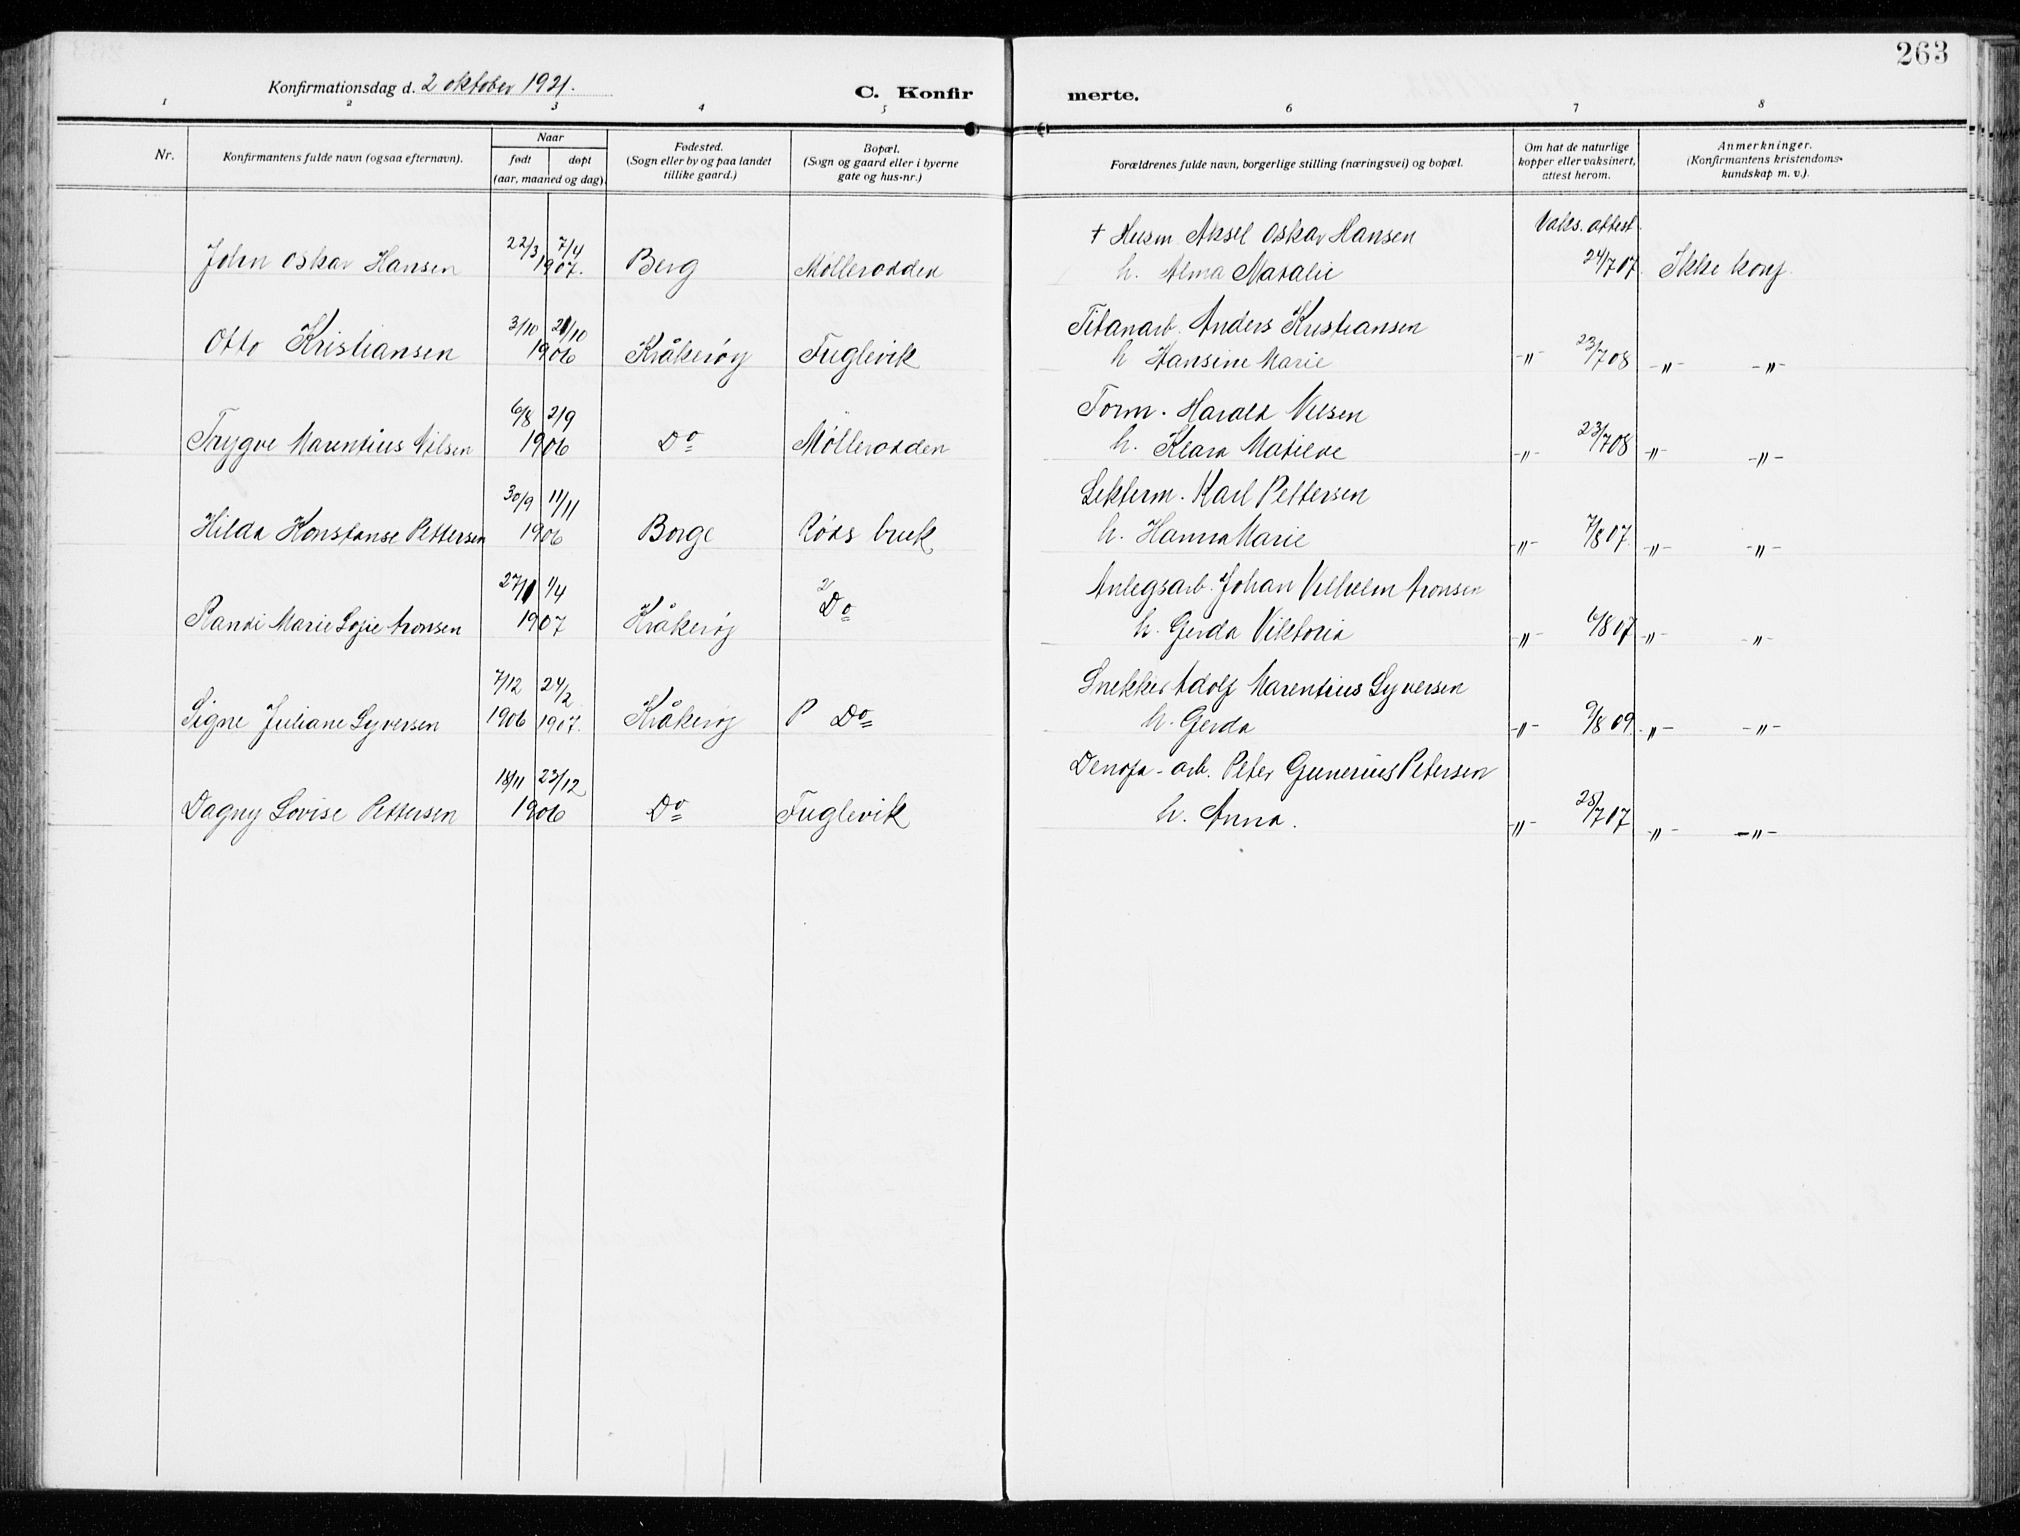 263
Konfirmationsdag d. 2 oktober 1921.
C. Konfirmerte.
1 2 3 4 5 6 7 8
Nr.
Konfirmantens fulde navn (ogsaa efternavn).
Naar
født døpt
(aar, maaned og dag).
Fødested.
(Sogn eller by og paa landet
tillike gaard.)
Bopæl.
(Sogn og gaard eller i byerne
gate og hus-nr.)
Forældrenes fulde navn, borgerlige stilling (næringsvei) og bopæl.
Om hat de naturlige
kopper eller vaksinert,
attest herom.
Anmerkninger.
(Konfirmantens kristendoms-
kundskap m. v.).
† Husm. Aksel Oskar Hansen Vaks. attest.
John Oskar Hansen 22/3 7/4 1907. Berg Møllerodden h. Alma Natalie 24/7 07 Ikke konf.
Titanarb. Anders Kristiansen
Otto Kristiansen 3/10 21/10 1906 Kråkerøy Fuglevik h Hansine Marie -"- 23/7 08 -"- -"-
Form. Harald Nilsen
Trygve Marentius Nilsen 6/8 2/9 1906 Do Mølleroden h. Klara Matilde -"- 23/7 08 -"- -"-
Lekterm. Karl Pettersen
Hilda Konstanse Pettersen 30/9 11/11 1906 Borge Røds bruk h. Hanna Marie -"- 7/8 07. -"- -"-
Anlegsarb. Johan Vilhelm Aronsen
Randi Marie Sofie Aronsen 27/1 1/4 1907 Kråkerøy Do h. Gerda Viktoria -"- 6/8 07 -"- -"-
Snekker Adolf Marentius Syversen
Signe Juliane Syversen 7/12 1906 24/2 1907. Kråkerøy Do h. Gerda -"- 9/8 09. -"- -"-
Denofa-arb. Peter Gunerius Petersen
Dagny Lovise Pettersen 18/11 23/12 1906 Do Fuglevik h. Anna. -"- 28/7 07 -"- -"-